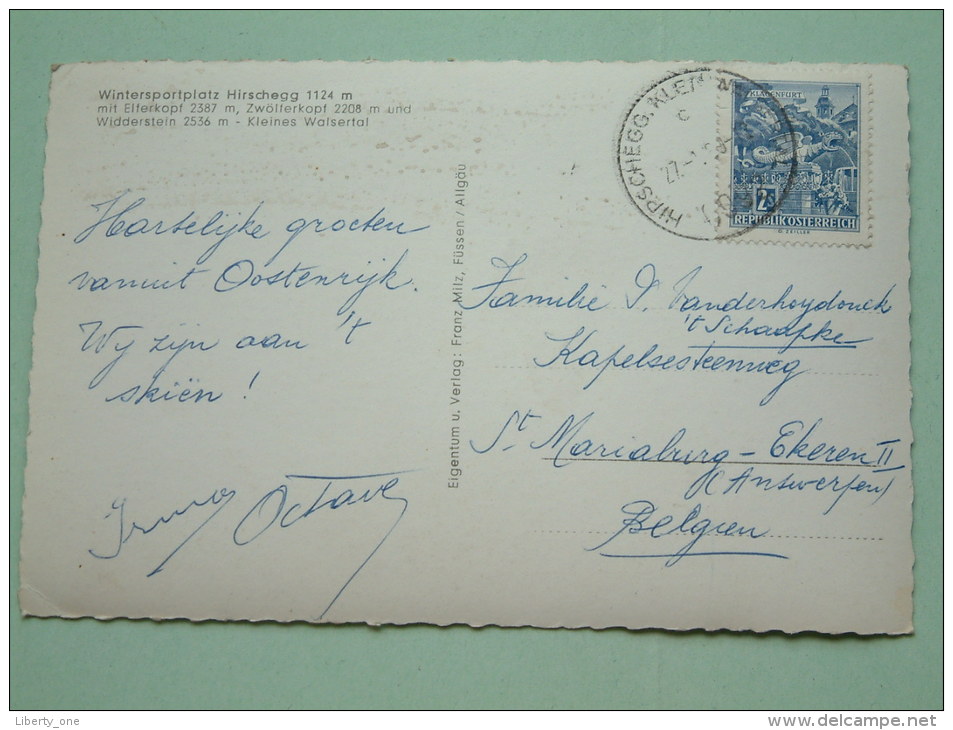 Wintersportplatz Hirschegg 1124 m
mit Elferkopf 2387 m, Zwölferkopf 2208 m und
Widderstein 2536 m - Kleines Walsertal
Hartelijke groeten
vanuit Oostenrijk.
Wij zijn aan 't
skiën!
Irma Octave
Eigentum u. Verlag: Franz Milz, Füssen/Allgäu
HIRSCHEGG, KLEIN
KLAGENFURT
2S
REPUBLIK ÖSTERREICH
Familie Vanderheydonck
't Schaapke
Kapelsesteenweg
St Mariaburg - Ekeren II
(Antwerpen)
Belgien
Liberty_one
http://www.delcampe.net